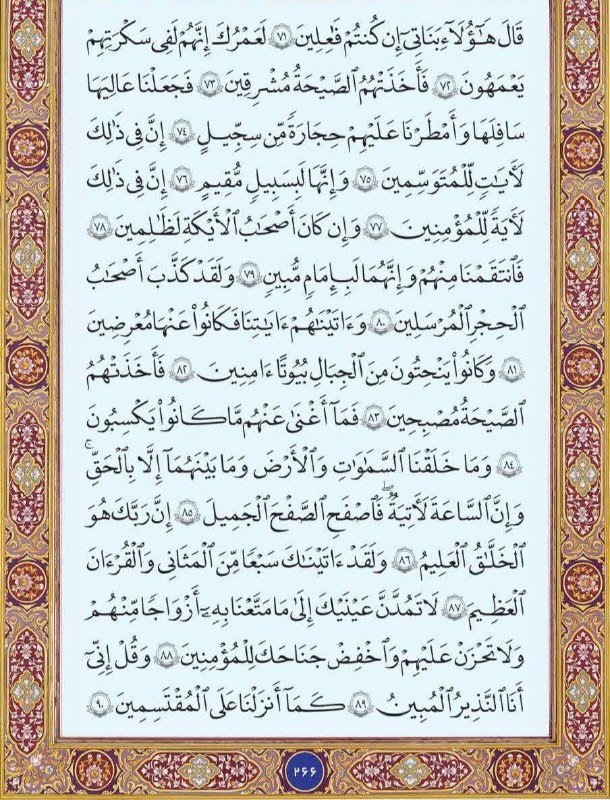 قَالَ هَـٰٓؤُلَآءِ بَنَاتِىٓ إِن كُنتُمْ فَـٰعِلِينَ ٧١ لَعَمْرُكَ إِنَّهُمْ لَفِى سَكْرَتِهِمْ
يَعْمَهُونَ ٧٢ فَأَخَذَتْهُمُ ٱلصَّيْحَةُ مُشْرِقِينَ ٧٣ فَجَعَلْنَا عَـٰلِيَهَا
سَافِلَهَا وَأَمْطَرْنَا عَلَيْهِمْ حِجَارَةً مِّن سِجِّيلٍ ٧٤ إِنَّ فِى ذَٰلِكَ
لَـَٔايَـٰتٍ لِّلْمُتَوَسِّمِينَ ٧٥ وَإِنَّهَا لَبِسَبِيلٍ مُّقِيمٍ ٧٦ إِنَّ فِى ذَٰلِكَ
لَـَٔايَةً لِّلْمُؤْمِنِينَ ٧٧ وَإِن كَانَ أَصْحَـٰبُ ٱلْأَيْكَةِ لَظَـٰلِمِينَ ٧٨
فَٱنتَقَمْنَا مِنْهُمْ وَإِنَّهُمَا لَبِإِمَامٍ مُّبِينٍ ٧٩ وَلَقَدْ كَذَّبَ أَصْحَـٰبُ
ٱلْحِجْرِ ٱلْمُرْسَلِينَ ٨٠ وَءَاتَيْنَـٰهُمْ ءَايَـٰتِنَا فَكَانُوا۟ عَنْهَا مُعْرِضِينَ
٨١ وَكَانُوا۟ يَنْحِتُونَ مِنَ ٱلْجِبَالِ بُيُوتًا ءَامِنِينَ ٨٢ فَأَخَذَتْهُمُ
ٱلصَّيْحَةُ مُصْبِحِينَ ٨٣ فَمَآ أَغْنَىٰ عَنْهُم مَّا كَانُوا۟ يَكْسِبُونَ
٨٤ وَمَا خَلَقْنَا ٱلسَّمَـٰوَٰتِ وَٱلْأَرْضَ وَمَا بَيْنَهُمَآ إِلَّا بِٱلْحَقِّ ۗ
وَإِنَّ ٱلسَّاعَةَ لَـَٔاتِيَةٌ ۖ فَٱصْفَحِ ٱلصَّفْحَ ٱلْجَمِيلَ ٨٥ إِنَّ رَبَّكَ هُوَ
ٱلْخَلَّـٰقُ ٱلْعَلِيمُ ٨٦ وَلَقَدْ ءَاتَيْنَـٰكَ سَبْعًا مِّنَ ٱلْمَثَانِى وَٱلْقُرْءَانَ
ٱلْعَظِيمَ ٨٧ لَا تَمُدَّنَّ عَيْنَيْكَ إِلَىٰ مَا مَتَّعْنَا بِهِۦٓ أَزْوَٰجًا مِّنْهُمْ
وَلَا تَحْزَنْ عَلَيْهِمْ وَٱخْفِضْ جَنَاحَكَ لِلْمُؤْمِنِينَ ٨٨ وَقُلْ إِنِّىٓ
أَنَا ٱلنَّذِيرُ ٱلْمُبِينُ ٨٩ كَمَآ أَنزَلْنَا عَلَى ٱلْمُقْتَسِمِينَ ٩٠
٢٦٦